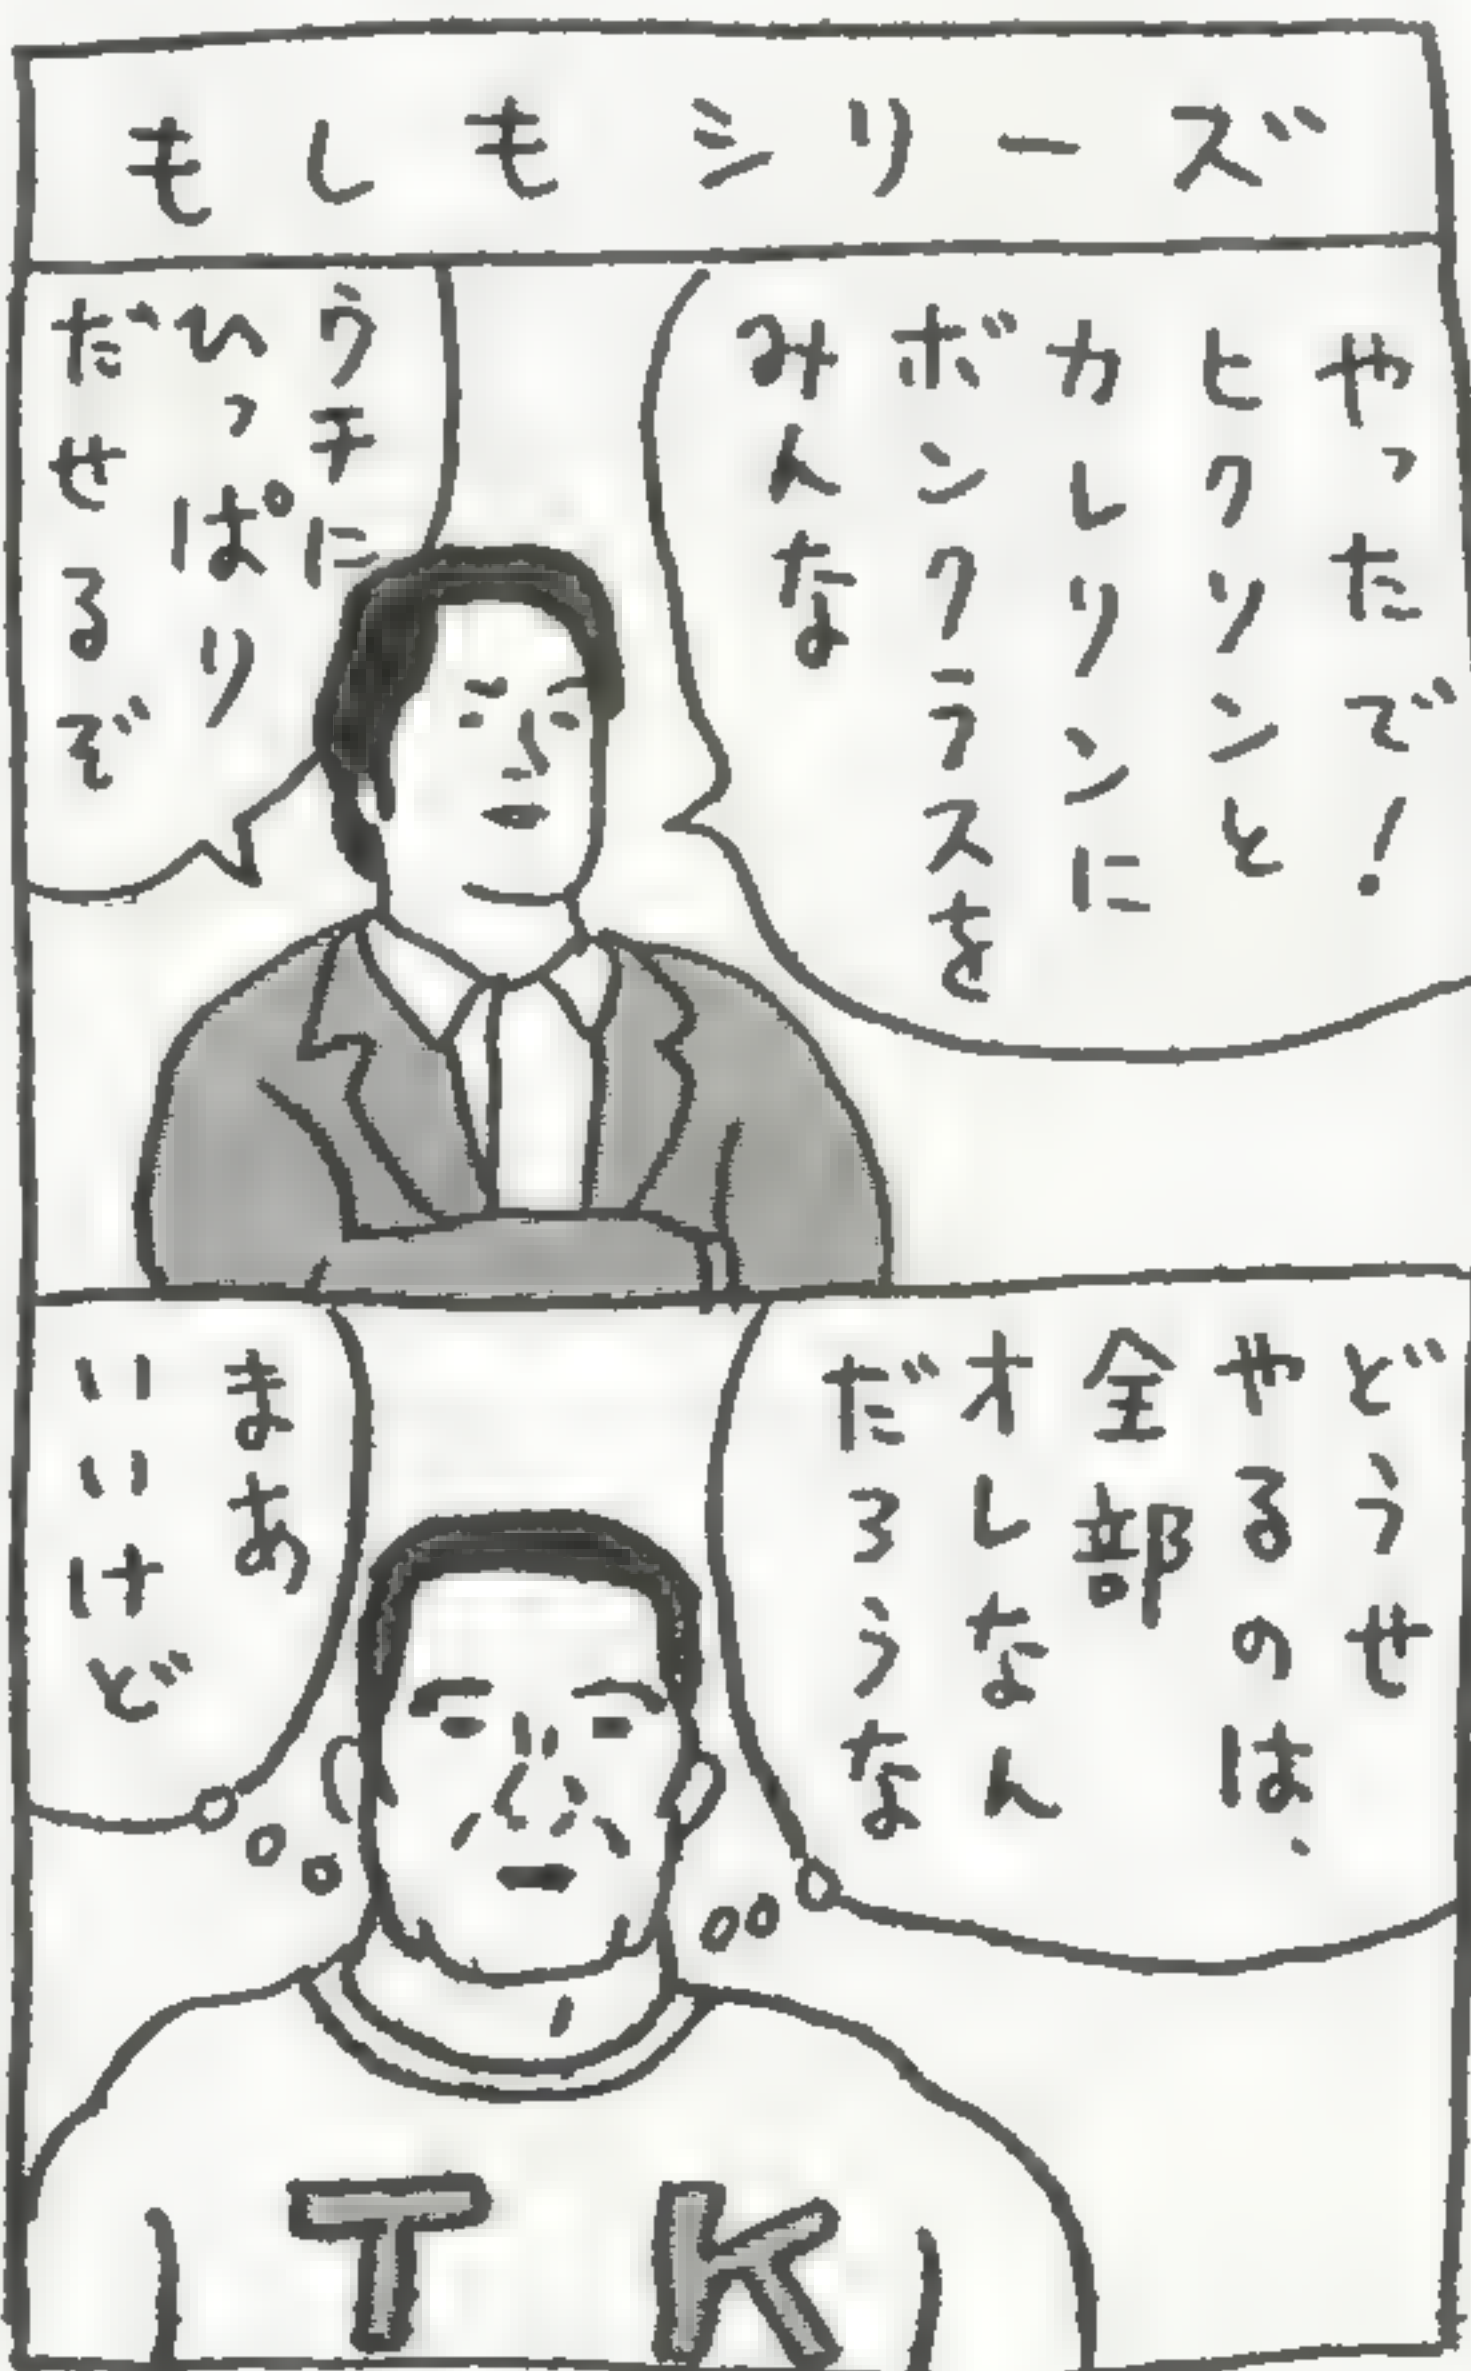 もしもシリーズ
やったで!
ヒクソンと
カレリンに
ボンクラスを
みんな
ウチに
ひっぱり
だせるぞ
どうせ
やるのは、
全部
オレなん
だろうな
まあ
いいけど
TK